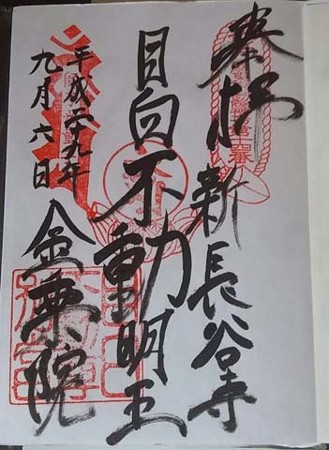 奉拝 新長谷寺
目白不動明王
平成二十九年
九月六日
金乗院